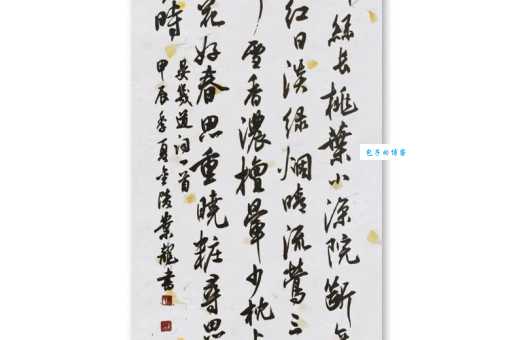 絲長桃葉小深院斷無
紅日淡綠烟晴流鶯三
雪香濃檀暈少枕上
花好春思重曉粧尋思
時
晏幾道词一首
甲辰季夏金陵業龍書
包子的博客